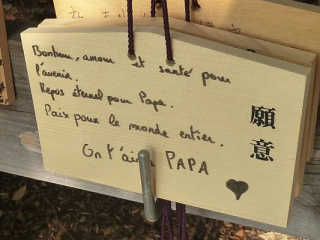 Bonheur, amour et santé pour
l'avenir.
Repos éternel pour Papa.
Paix pour le monde entier.
On t'aime PAPA
願意